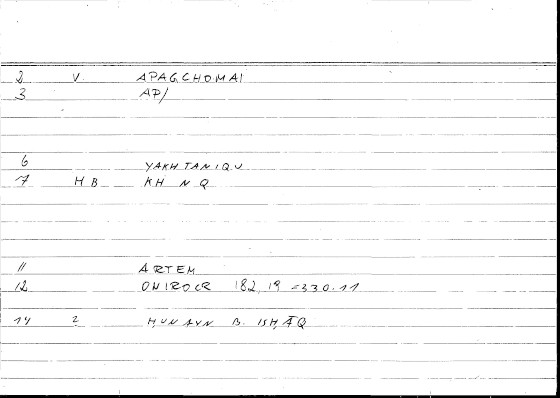 2 V. APAGCHOMAI
3 AP/
6 YAKHTANIQU
7 HB KH N Q
11 ARTEM
12 ONIROCR 182,19 = 330.11
14 2 ḤUNAYN B. ISḤĀQ